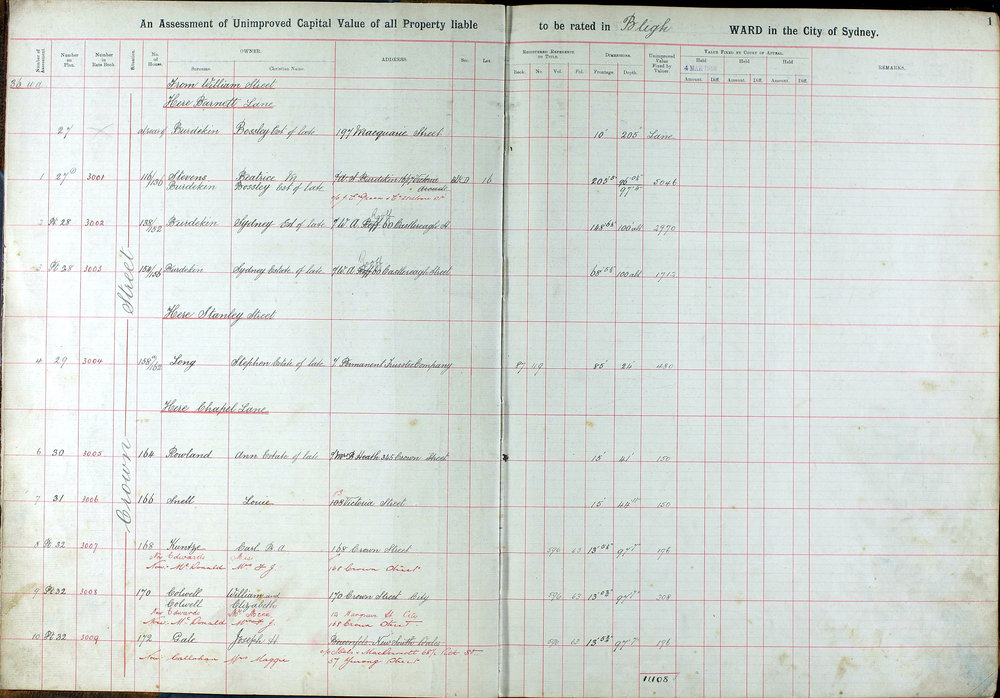 1
An Assessment of Unimproved Capital Value of all Property liable to be rated in Bligh WARD in the City of Sydney.
Number of Assessment. Number on Plan. Number in Rate Book. Situation. No. of House. OWNER. Surname. Christian Name. ADDRESS. Sec. Lot. REGISTERED REFERENCE TO TITLE. Book. No. Vol. Fol. DIMENSIONS. Frontage. Depth. Unimproved Value Fixed by Valuer. VALUE FIXED BY COURT OF APPEAL. Held Amount. Diff. Held Amount. Diff. Held Amount. Diff. REMARKS.
4 MAR
36 From William Street
Here Barnett Lane
27 Burdekin Bossley Est of late 197 Macquarie Street 10' 205' Lane
1 27 3001 116/136 Stevens Beatrice M 16 205 5046
Burdeken Bossley Est of late
2 Pt 28 3002 138/152 Burdekin Sydney Est of late 60 Castlereagh St 100 all 2970
3 Pt 28 3003 154/156 Burdeken Sydney Estate of late 60 Castlereagh Street 100 all 1712
Crown Street
Here Stanley Street
4 29 3004 158/162 Long Stephen Estate of late Permanent Trustee Company 87 119 85' 24' 480
Here Chapel Lane
6 30 3005 164 Rowland Ann Estate of late Heath 345 Crown Street 15' 41' 150
7 31 3006 166 Snell Louie Victoria Street 15' 44 150
8 Pt 32 3007 168 Kuntze Carl B A 168 Crown Street 596 63 97 196
Now Edwards
Now McDonald Mrs F J 168 Crown Street
9 Pt 32 3008 170 Colwell William and 170 Crown Street City 596 63 97 208
Colwell Elizabeth
Now Edwards
Now McDonald 168 Crown Street
10 Pt 32 3009 172 Gale Joseph H New South Wales 596 63 97 196
Now Callaghan Mrs Maggie 57 Street
11108